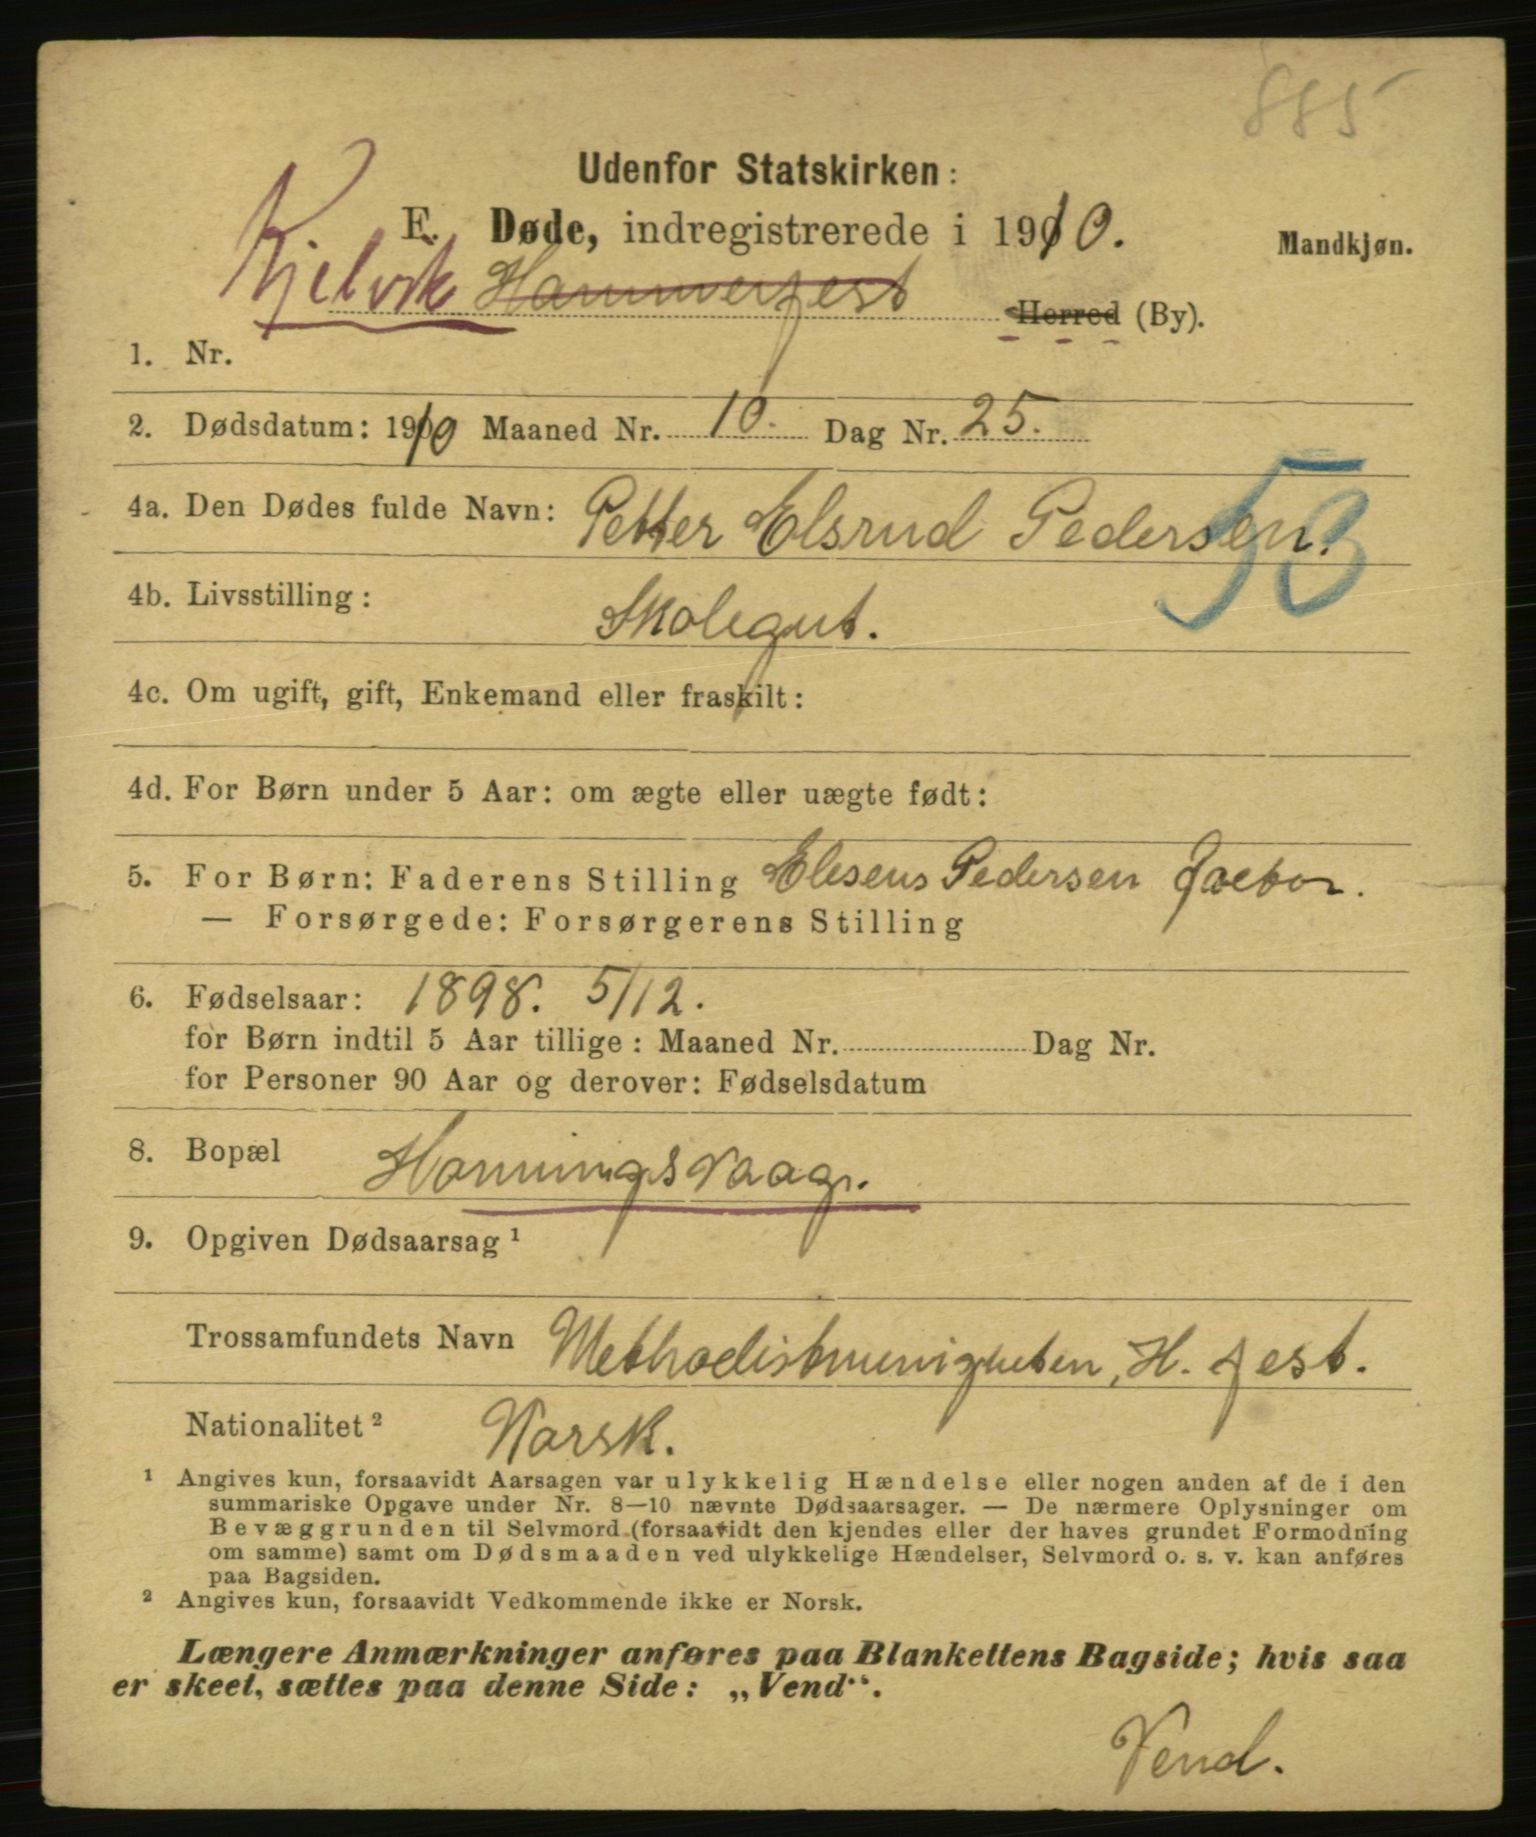 885
Udenfor Statskirken:
E. Døde, indregistrerede i 1910. Mandkjøn.
Kjelvik Hammerfest Herred (By).
1. Nr.
2. Dødsdatum: 1910 Maaned Nr. 10. Dag Nr. 25.
4a. Den Dødes fulde Navn: Petter Elsrud Pedersen.
53
4b. Livsstilling: Skolegut.
4c. Om ugift, gift, Enkemand eller fraskilt:
4d. For Børn under 5 Aar: om ægte eller uægte født:
5. For Børn: Faderens Stilling Eleseus Pedersen Faktor.
— Forsørgede: Forsørgerens Stilling
6. Fødselsaar: 1898. 5/12.
for Børn indtil 5 Aar tillige: Maaned Nr. Dag Nr.
for Personer 90 Aar og derover: Fødselsdatum
8. Bopæl Honningsvaag.
9. Opgiven Dødsaarsag ¹
Trossamfundets Navn Methodistmenigheten, H. fest.
Nationalitet ² Norsk.
¹ Angives kun, forsaavidt Aarsagen var ulykkelig Hændelse eller nogen anden af de i den
summariske Opgave under Nr. 8—10 nævnte Dødsaarsager. — De nærmere Oplysninger om
Bevæggrunden til Selvmord (forsaavidt den kjendes eller der haves grundet Formodning
om samme) samt om Dødsmaaden ved ulykkelige Hændelser, Selvmord o. s. v. kan anføres
paa Bagsiden.
² Angives kun, forsaavidt Vedkommende ikke er Norsk.
Længere Anmærkninger anføres paa Blankettens Bagside; hvis saa
er skeet, sættes paa denne Side: „Vend“.
Vend.